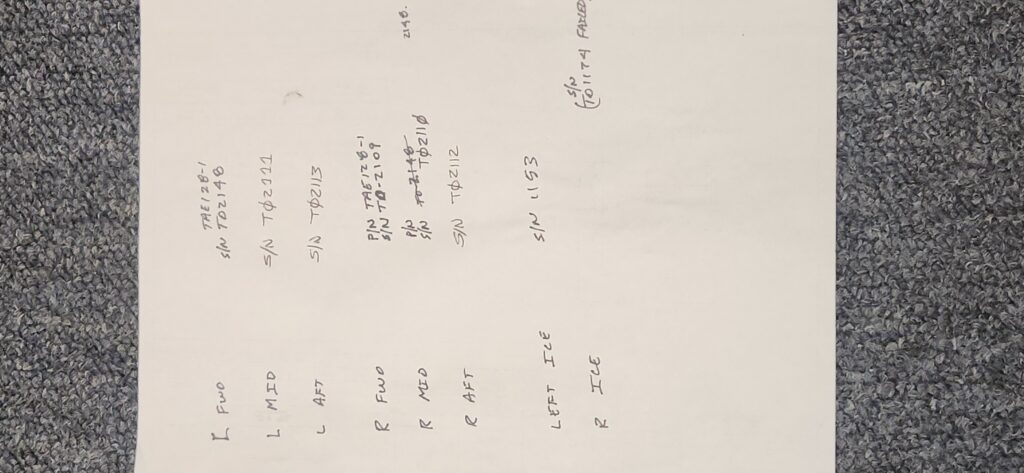 L FWD TAE128-1
S/N TD2148
L MID S/N TØ2111
L AFT S/N TØ2113
R FWD P/N TAE128-1
S/N TØ-2109
2148.
R MID P/N TO-2148
S/N TØ211Ø
R AFT S/N TØ2112
LEFT ICE S/N 1153
R ICE (S/N
TO1174 FAILED